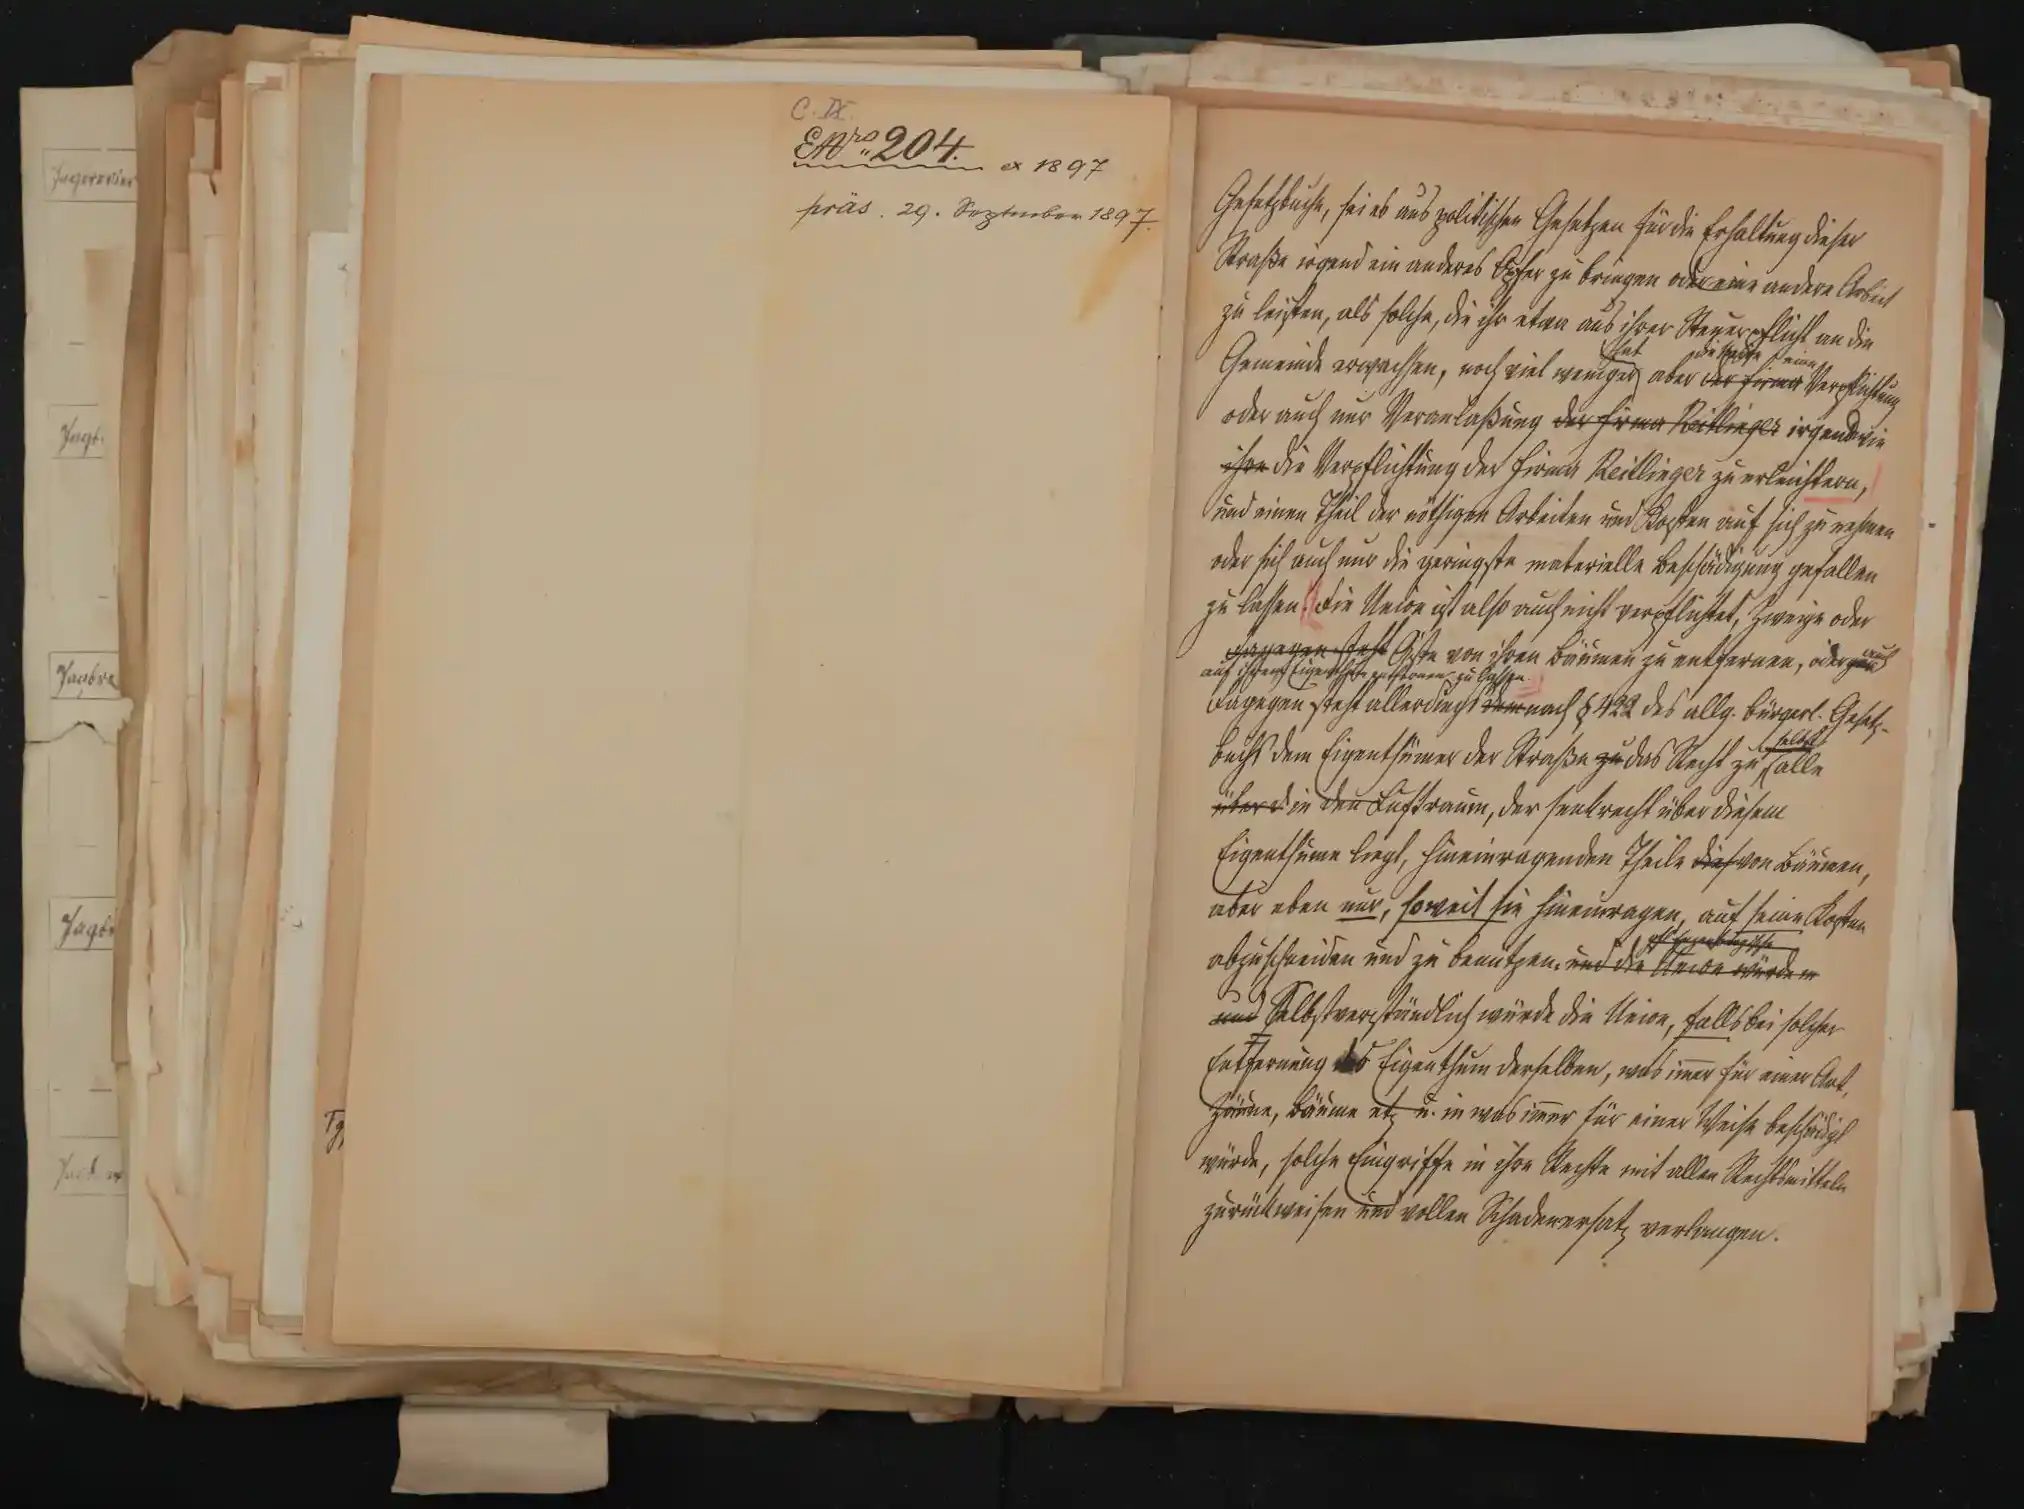 Jagdrevier
Jagd-
C. IX.
E Nro 204. ex 1897
präs. 29. September 1897.
Gesetzbuche, sei es aus politischen Gesetzen für die Erhaltung dieser
Straße irgend ein anderes Opfer zu bringen oder eine andere Arbeit
zu leisten, als solche, die ihr etwa aus ihrer Steuerpflicht an die
Gemeinde erwachsen, noch viel weniger hat aber dieselbe eine der Firma Verpflichtung
oder auch nur Veranlaßung der Firma Reitlinger irgendwie
ihre die Verpflichtung der Firma Reitlinger zu erleichtern,
und einen Theil der nöthigen Arbeiten und Kosten auf sich zu nehmen
oder sich auch nur die geringste materielle Beschädigung gefallen
zu lassen. Die Union ist also auch nicht verpflichtet, Zweige oder
Dagegen steht Äste von ihren Bäumen zu entfernen, oder auch
auf ihrem Eigenthum entfernen zu lassen.
Dagegen steht allerdings dem nach § 422 des allg. bürgerl. Gesetz-
buchs dem Eigenthümer der Straße zu das Recht zu, selbst alle
über d in den Luftraum, der senkrecht über diesem
Eigenthume liegt, hineinragenden Theile dies von Bäumen,
aber eben nur, soweit sie hineinragen, auf seine Kosten
abzuschneiden und zu benützen. und die Union würde
und Selbstverständlich würde die Union, falls bei solcher
Entfernung das Eigenthum derselben, was immer für einer Art,
Zäune, Bäume etz u. in was immer für einer Weise beschädigt
würde, solche Eingriffe in ihre Rechte mit allen Rechtsmitteln
zurückweisen und vollen Schadenersatz verlangen.